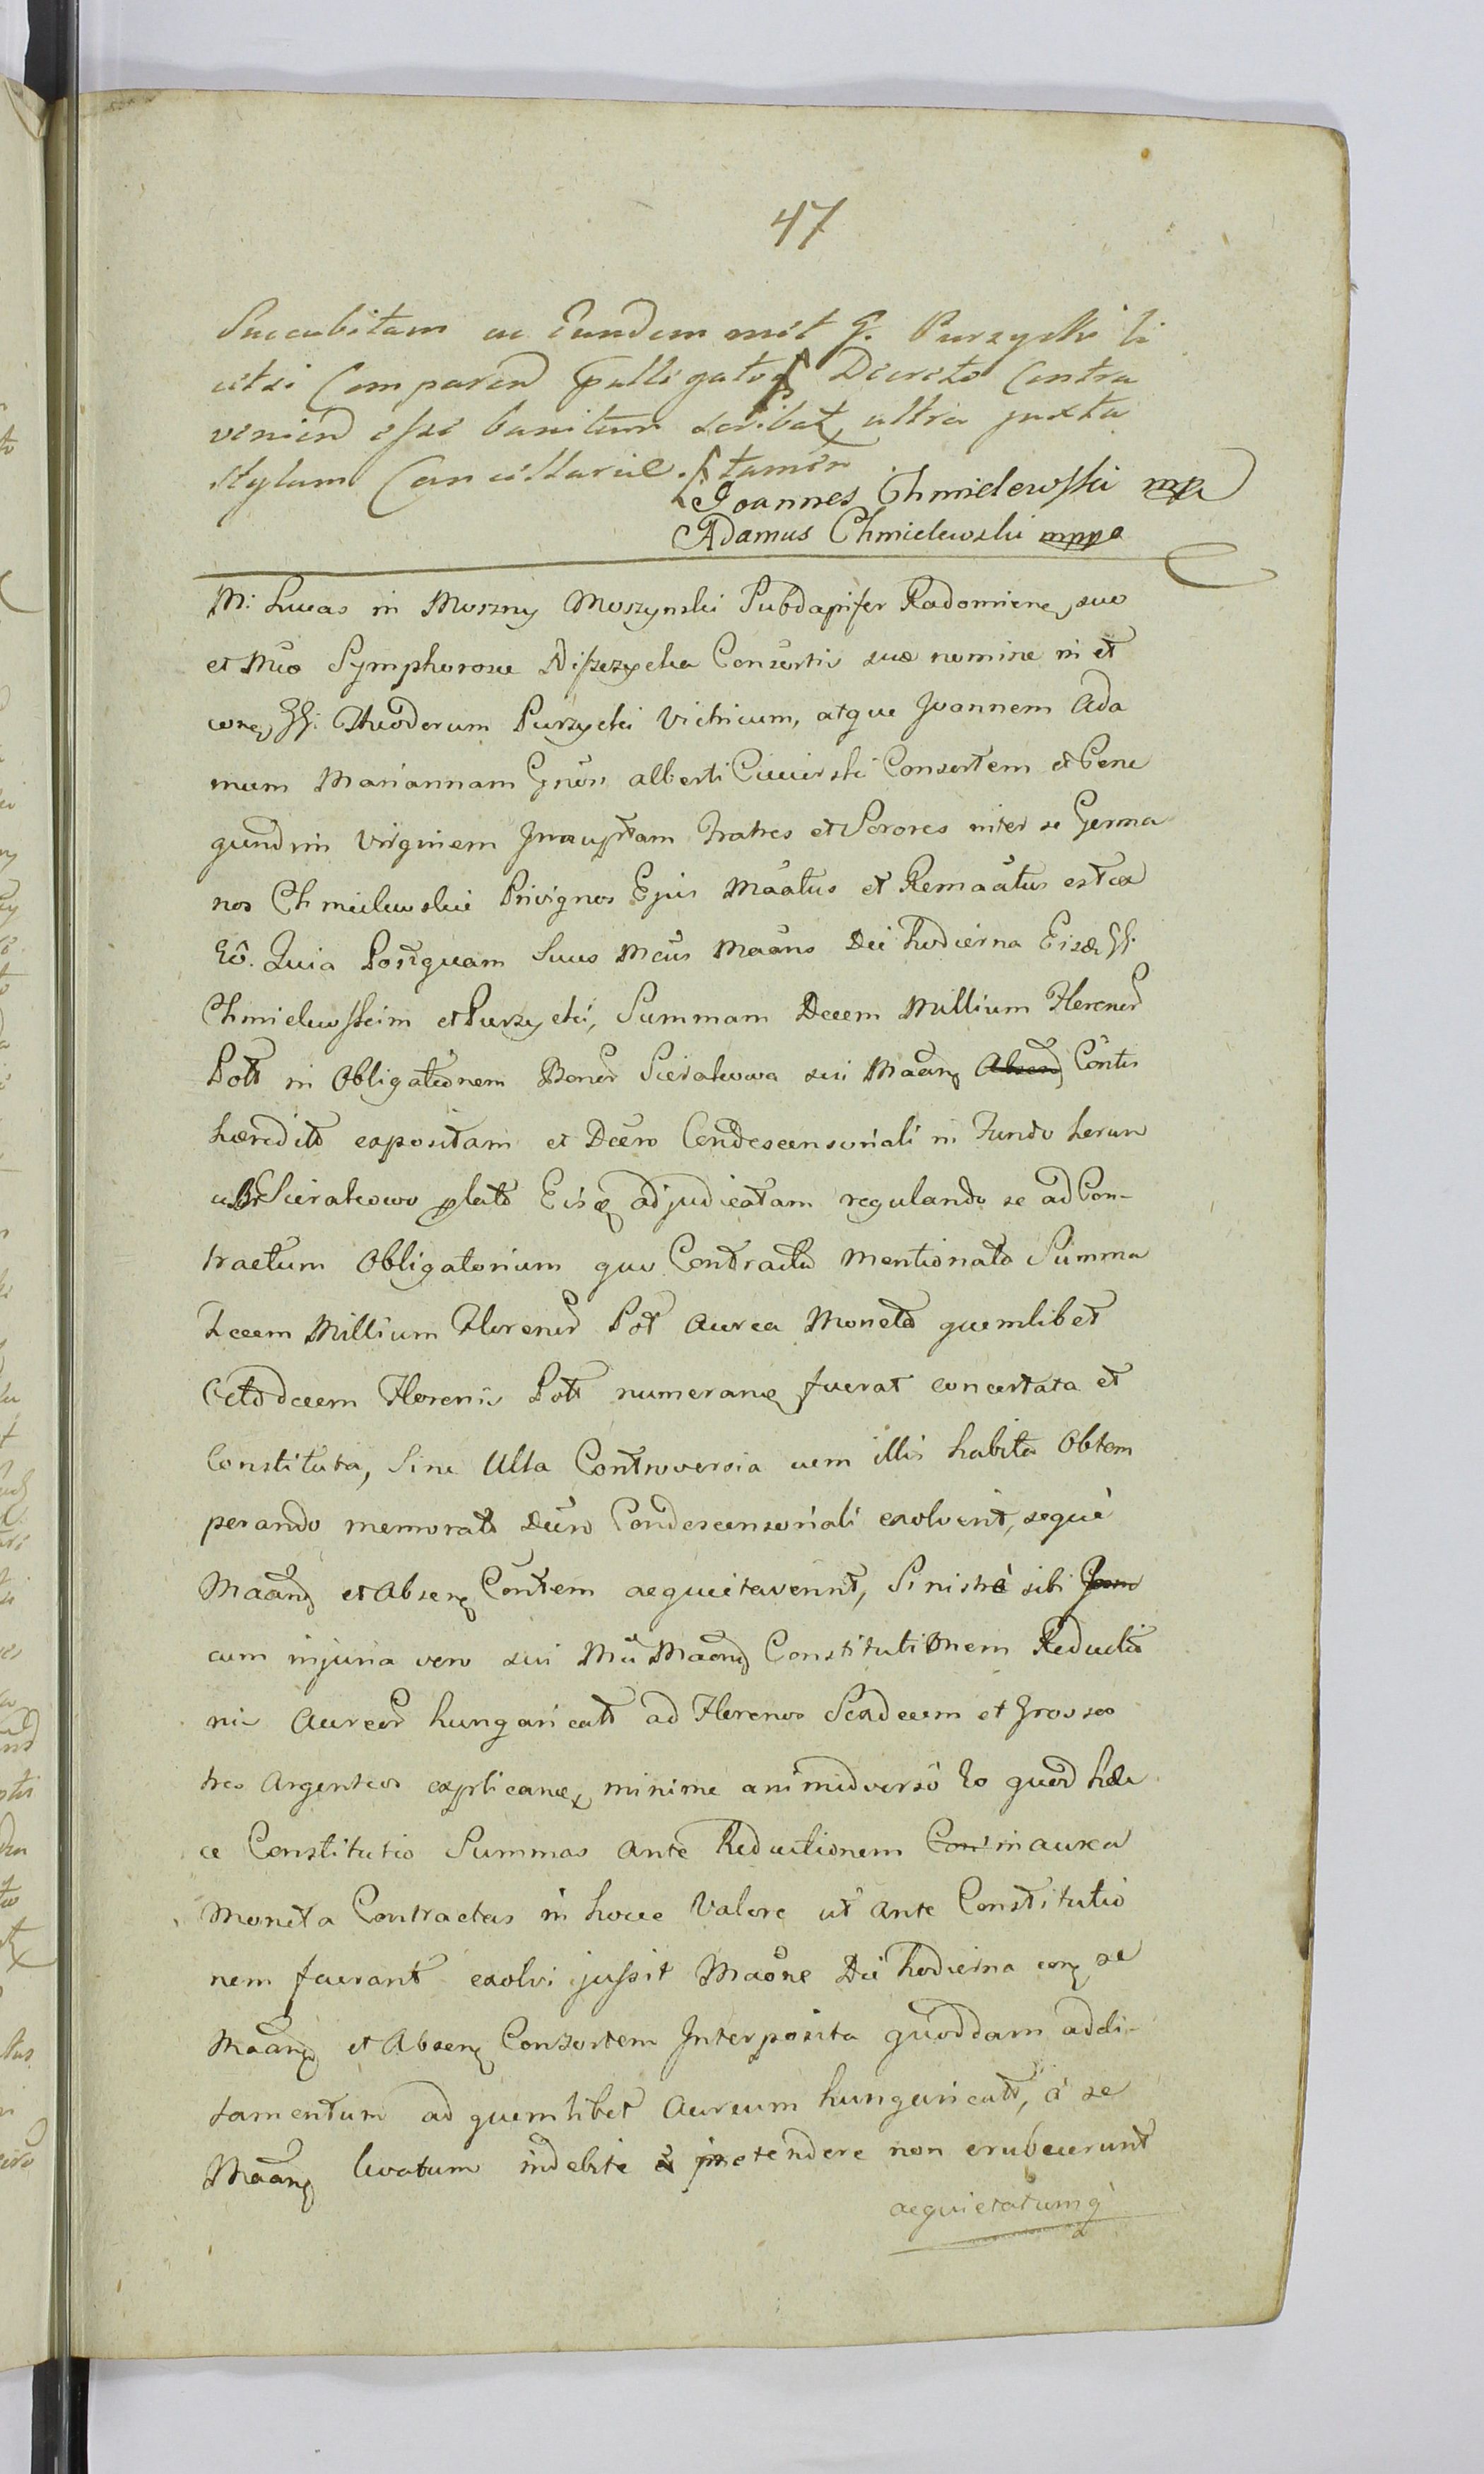 47
Succubitam ac Eundem mot G. Purzycki li
cet si Comparen palligatos Decreto Contra
venien esse banitum scribat, altria juxta
stylum Cancellariae. tamen
Joannes Chmielewski mp
Adamus Chmielewski mppa
M: Lucas in Moszny Moszynski Subdapifer Radomien suo
et Mcö Symphorosae Consortis suae nomine in et
con GG. Theodorum Purzycki Vitricum, atque Joannem Ada
mum Mariannam Gnosi alberti Consortem et Cene
gundim Virginem Innuptam Fratres et Sorores inter se Germa
nos Chmielewskie Privignos Ejus Maatus et Remaatus est ea
Eô. Quia Postquam Suus Mcus Maans Die hodierna Eisd GG.
Chmielewskim et Purzycki, Summam Decem Millium Florenor
Poll in Obligationem Bonor Sierakowa sui Maang Absen Contis
haeredit expositam et Decro Condescensoriali in Fundo horum
Sierakowo plato Eisq adjudicatam regulando se ad Con-
tractum Obligatorium quo Contractu mentionata Summa
Decem Millium Florenor Pol Aurea Moneta quemlibet
Octodecem Florenis Poll numeran fuerat concertata et
Constituta, Sine Ulla Controversia cum illis habita Obtem
perando memorato Decro Condescensoriali exolvent, seque
Maang et Absen Contem acquietaverint, Sinistre sibi
cum injuria vero sui Mci Maang Constitutionem Reductio
nis Aureor hungaricall ad Florenos Sexdecem et Grossos
tres Argenteos explican minime animidverso Eo quod hae
ce Constitutio Summas ante Reductionem Con in aurea
Moneta Contractas in hocce Valore ut Ante Constitutio
nem fuerant exolvi jussit Maone Die hodierna con se
Maang et Absen Consortem Interposita quoddam addi-
tamentum ad quemlibet Aureum hungaricall, á se
Maang levatum indebite praetendere non erubuerunt
acquietatumq